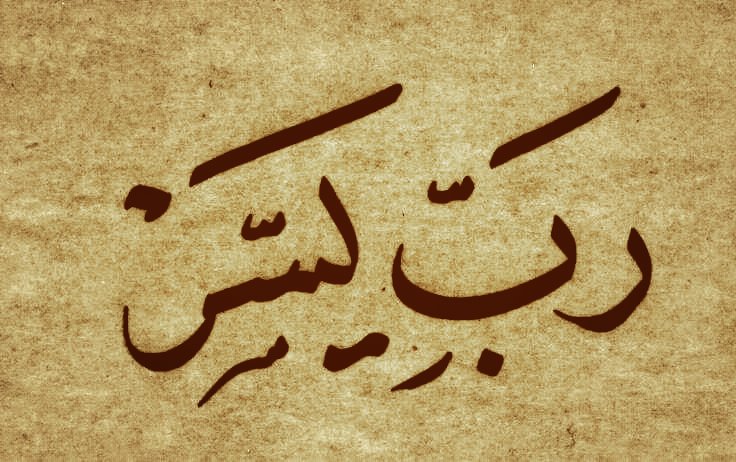 رَبِّ يَسِّرْ